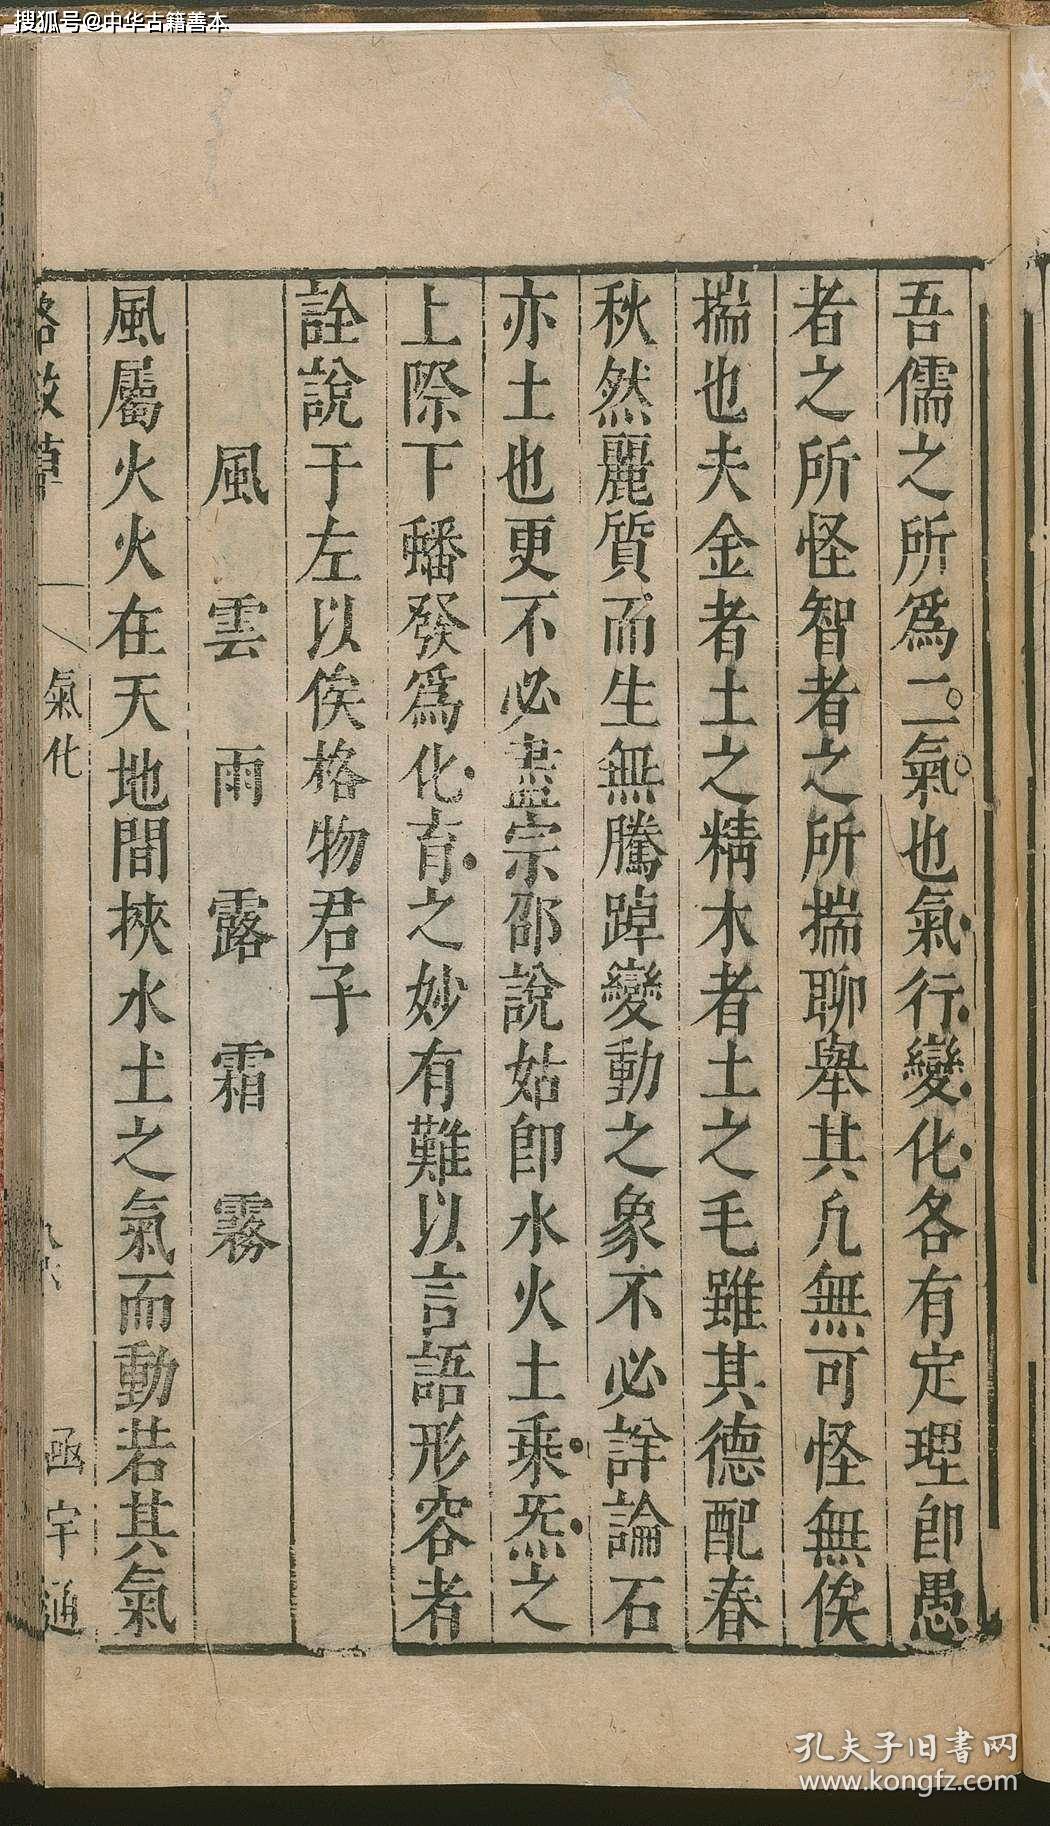 搜狐号@中华古籍善本
吾儒之所爲二氣也氣行變化各有定理卽愚
者之所怪智者之所揣聊舉其凡無可怪無俟
揣也夫金者土之精木者土之毛雖其德配春
秋然麗質而生無騰踔變動之象不必詳論石
亦土也更不必盡宗邵說姑卽水火土乘炁之
上際下蟠發爲化育之妙有難以言語形容者
詮說于左以俟格物君子
風雲雨露霜霧
風屬火火在天地間挾水土之氣而動若其氣
格致草
氣化
函宇通
孔夫子旧书网
www.kongfz.com